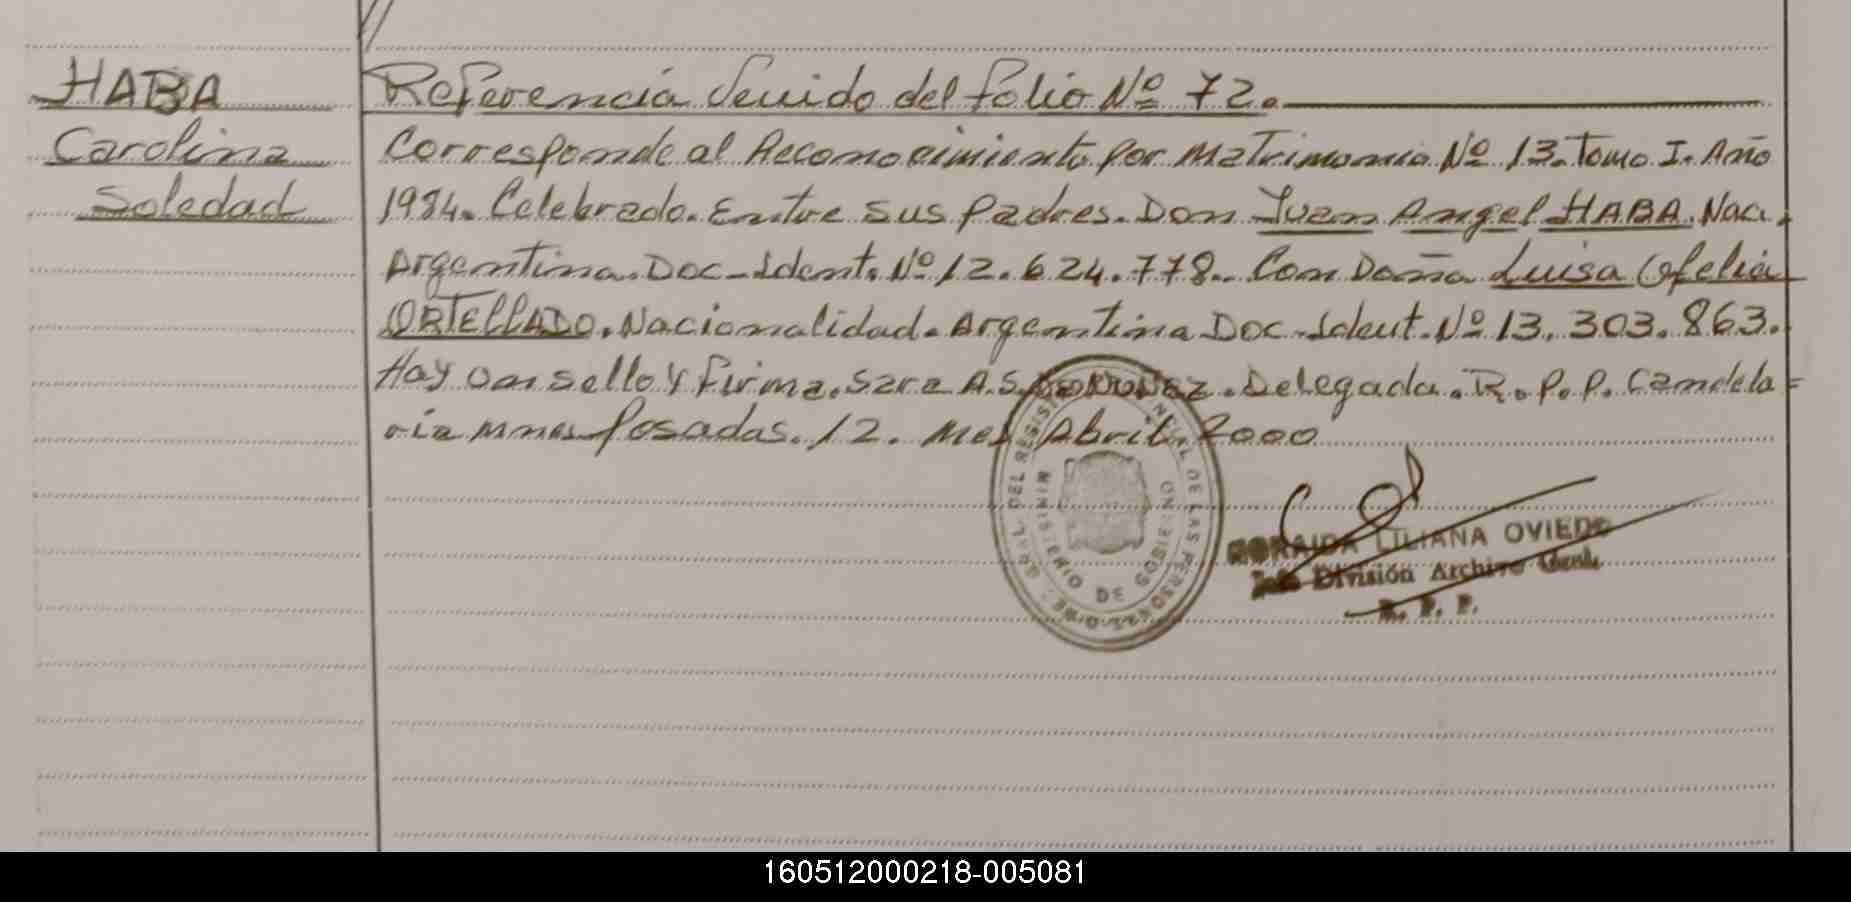 HABA
Carolina
Soledad
Referencia Venido del folio Nº 72.
Corresponde al Reconocimiento por Matrimonio Nº 13. Tomo I. Año
1984. Celebrado. Entre sus padres. Don Juan Angel HABA. Nac.
Argentina. Doc-Ident. Nº 12.624.778. Con Doña Luisa Ofelia
ORTELLADO. Nacionalidad. Argentina Doc-Ident. Nº 13.303.863.
Hay un sello y firma. Sara A. S. Delegada. R.P.P. Candela=
ria Mnes Posadas. 12. Mes Abril. 2000
GRAL DEL REGIST DE LAS PERSONAS
MINISTERIO DE GOBIERNO
ZORAIDA LILIANA OVIEDO
Jefe División Archivo Gral.
R. P. P.
160512000218-005081